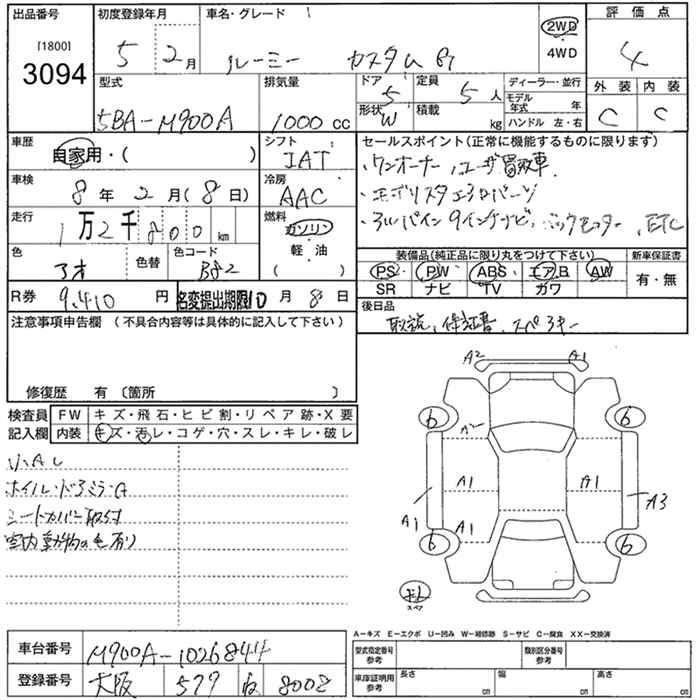 出品番号 初度登録年月 車名・グレード 評価点
[1800] 3094 5 2月 ルーミー カスタム 2WD・4WD 4
型式 排気量 ドア 定員 ディーラー・並行 外装 内装
5BA-M900A 1000cc 5 5人 モデル年式 年 C C
形状 W 積載 kg ハンドル 左・右
車歴 シフト セールスポイント(正常に機能するものに限ります)
自家用・( ) IAT ・ワンオーナー、ユーザー買取車
車検 冷房
8年2月(8日) AAC
走行 燃料 ・アルパイン9インチナビ、バックモニター、ETC
1万2千800km ガソリン・軽油( )
装備品(純正品に限り丸をつけて下さい) 新車保証書
色 色替 色コード PS PW ABS エアB AW 有・無
B82 SR ナビ TV ガワ
R券 9,410円 名変提出期限10月8日 後日品
取説、保証書、スペアキー
注意事項申告欄(不具合内容等は具体的に記入して下さい)
修復歴 有〔箇所 〕
検査員記入欄 FW キズ・飛石・ヒビ割・リペア跡・X要
内装 キズ・汚レ・コゲ・穴・スレ・キレ・破レ
小A
ホイル・ドアミラーA
シートカバー取付
室内動物の毛有り
A2 A1
6 6
A2
A1 A1
A1 A3
A1
6 6
スペア
A-キズ E-エクボ U-凹み W-補修跡 S-サビ C-腐食 XX-交換済
車台番号 M900A-1026844
型式指定番号 参考 類別区分番号 参考
登録番号 大阪 577 8008
車庫証明用 参考 長さ cm 幅 cm 高さ cm